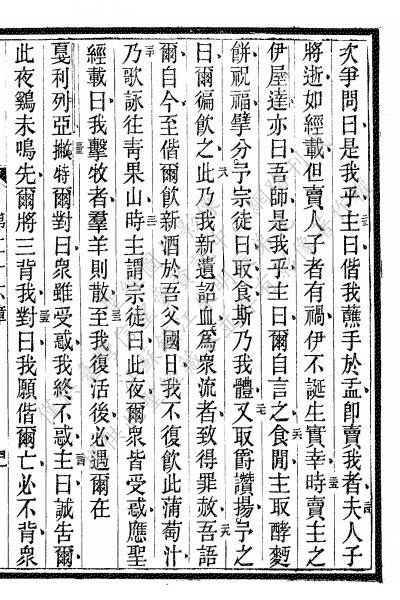 次爭問曰是我乎主曰偕我蘸手於盂卽賣我者夫人子
將逝如經載但賣人子者有禍伊不誕生實幸時賣主之
伊屋達亦曰吾師是我乎主曰爾自言之食閒主取酵麪
餅祝福擘分予宗徒曰取食斯乃我體又取爵讚揚予之
曰爾徧飲之此乃我新遺詔血爲衆流者致得罪赦吾語
爾自今至偕爾飲新酒於吾父國日我不復飲此蒲萄汁
乃歌詠往靑果山時主謂宗徒曰此夜爾衆皆受惑應聖
經載曰我擊牧者羣羊則散至我復活後必遇爾在
戛利列亞撇特爾對曰衆雖受惑我終不惑主曰誠告爾
此夜鷄未鳴先爾將三背我對曰我願偕爾亡必不背衆
第二十六章